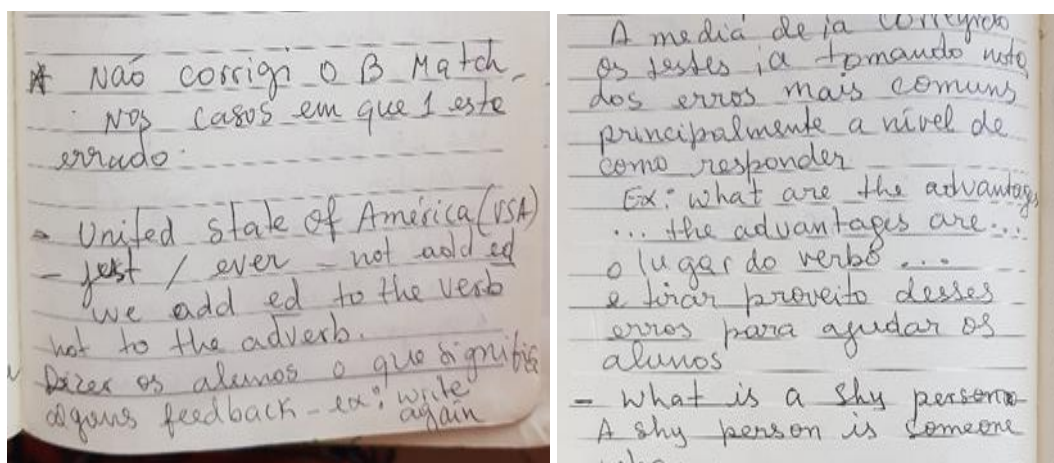 * Não corrigi o B Match.
Nos casos em que 1 este
errado.
- United state of América (USA)
- just / ever - not add ed
we add ed to the verb
not to the adverb.
Dizer os alunos o que signific
alguns feedback - ex: write
again
A media de ia corrigido
os testes ia tomando nota
dos erros mais comuns
principalmente a nível de
como responder
Ex: what are the advantag
... the advantages are...
o lugar do verbo ....
e tirar proveito desses
erros para ajudar os
alunos
- What is a shy person
A shy person is someone